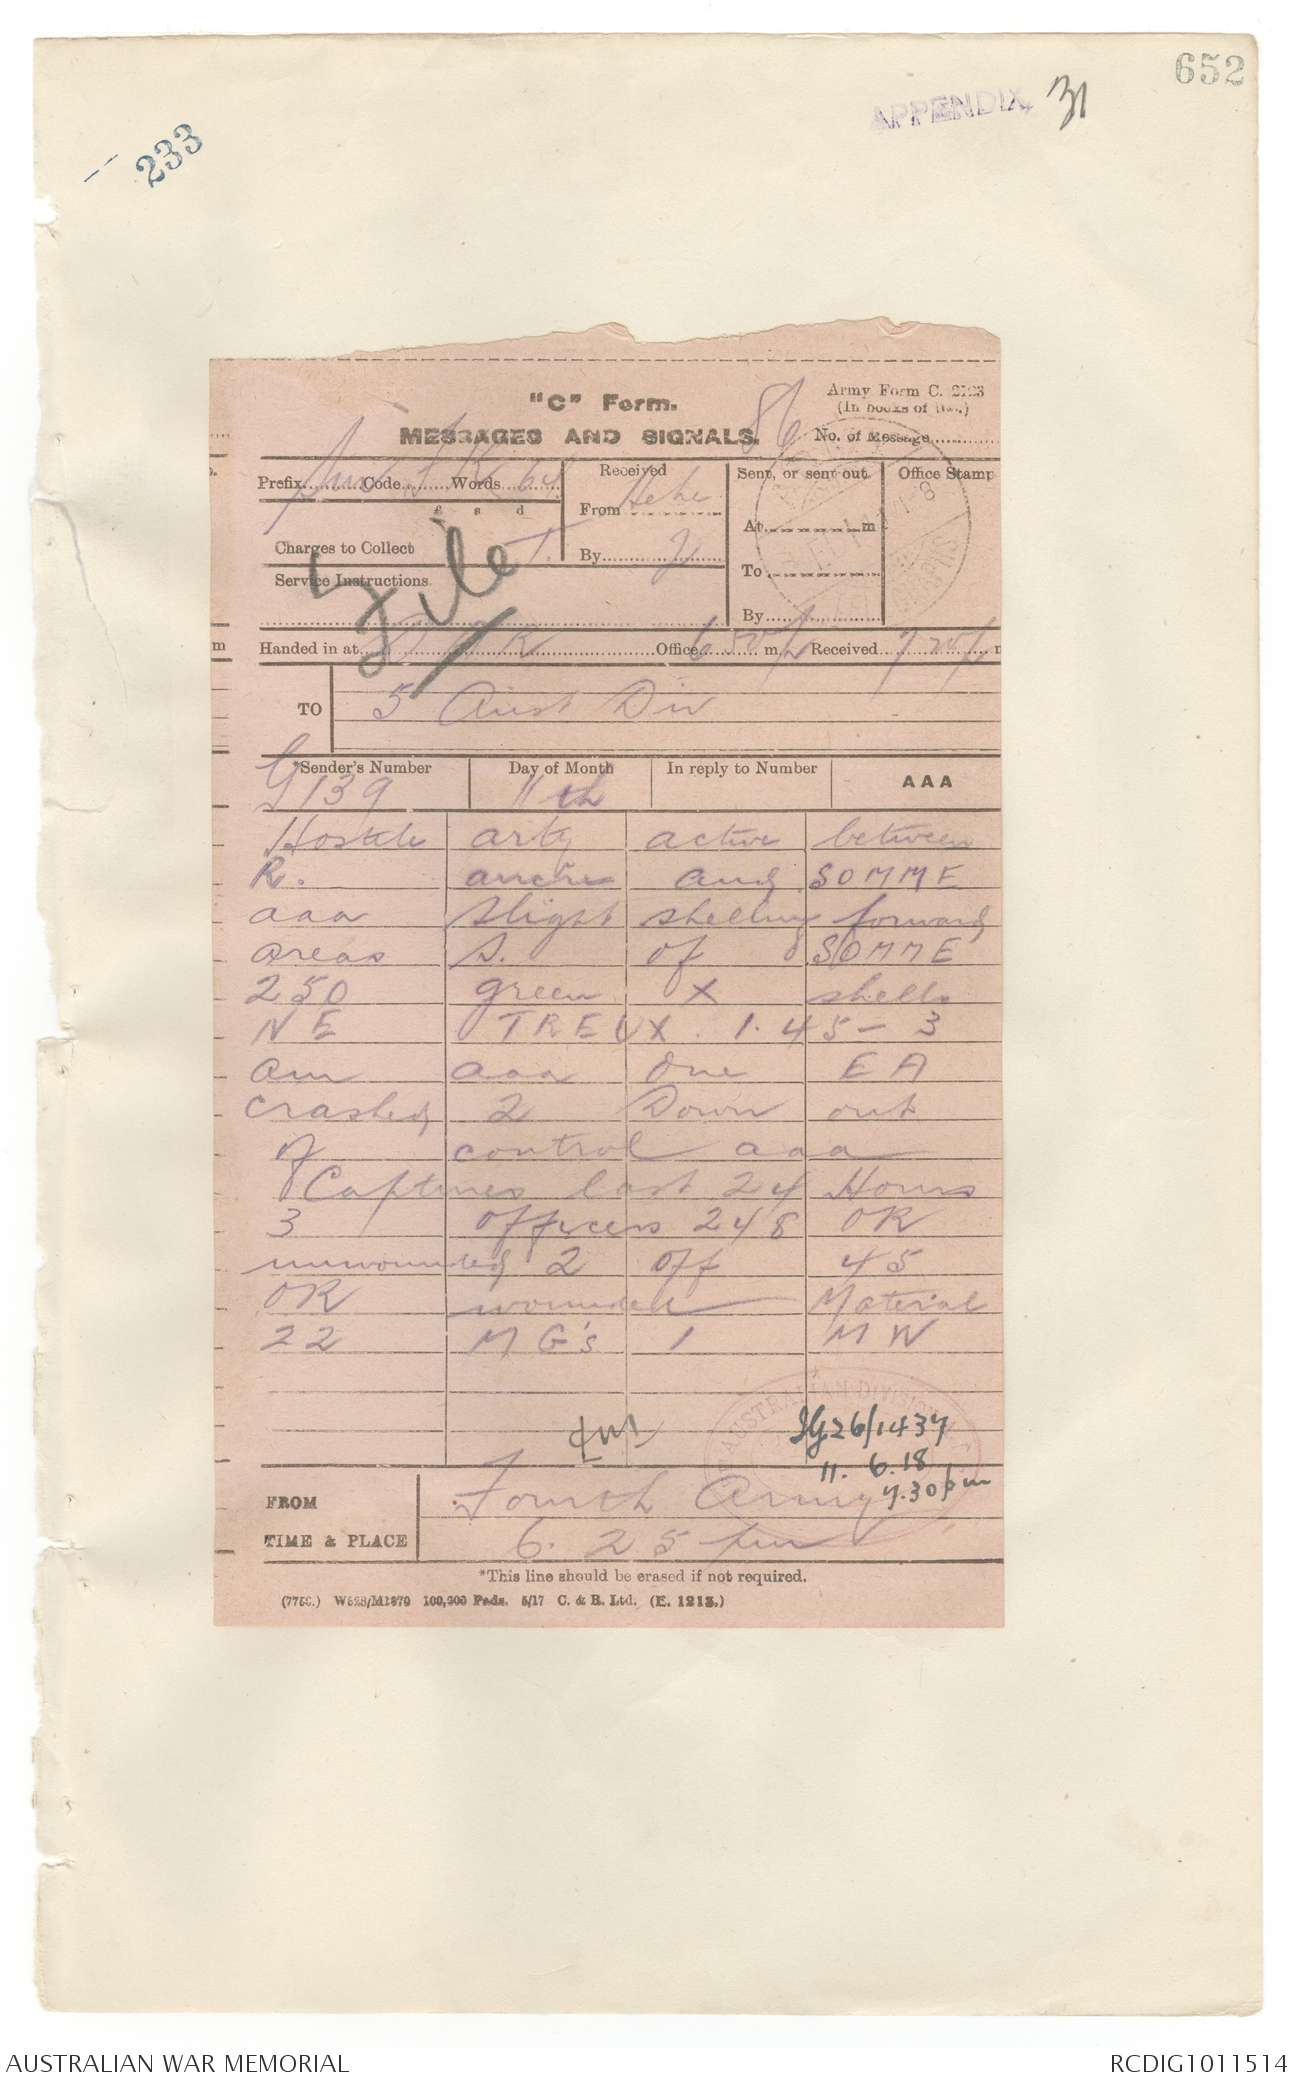 652
APPENDIX 31
233
"C" Form.
Army Form C. 2123
(In books of two.)
MESSAGES AND SIGNALS. 86 No. of Message
Prefix Code Words 64
Received
From
By
Sent, or sent out.
At m
To
By
Office Stamp
£ s d
Charges to Collect
Service Instructions
File
Handed in at Office 6 50 p m. Received 7 20 p m
TO 5 Aust Div
*Sender's Number Day of Month In reply to Number AAA
G139 11th
Hostile arty active between
R. ancre and SOMME
aaa slight shelling forward
areas S. of SOMME
250 green X shells
NE TREUX 1.45 - 3
am aaa One EA
crashed 2 Down out
of control aaa
Captures last 24 Hours
3 officers 248 OR
unwounded 2 off 45
OR wounded Material
22 MG's 1 MW
AUSTRALIAN DIVISION
IG26/1437
11. 6.18
7.30pm
FROM Fourth Army
TIME & PLACE 6. 25 pm
*This line should be erased if not required.
100,000 Pads. 5/17 C. & R. Ltd. (E. 1213.)
AUSTRALIAN WAR MEMORIAL
RCDIG1011514